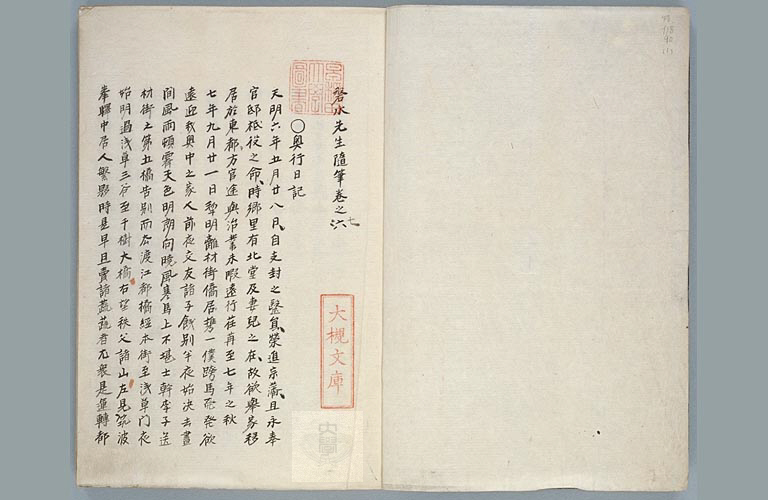 磐水先生随筆巻之六
七
〇奥行日記
天明六年五月廿八日自支封之醫員榮進宗藩且永奉
官邸祗役之命時郷里有北堂及妻兒之在故欲挙家移
居於東都方官途與治業未暇遠行荏苒至七年之秋
七年九月廿一日犂明離材街僑居携一僕跨馬而発欲
遠迎我奥中之家人前夜交友諸子餞別半夜始决去晝
間風雨頓霽天色明朗向曉風寒馬上不堪士幹李子送
材街之第五橋告別而久渡江都橋經本街至浅草门夜
始明過浅草三谷至千樹大橋右望秩父諸山左見筑波
峯驛中居人繁夥時是早且賣諸蔬者尤衆是運轉都
大槻文庫